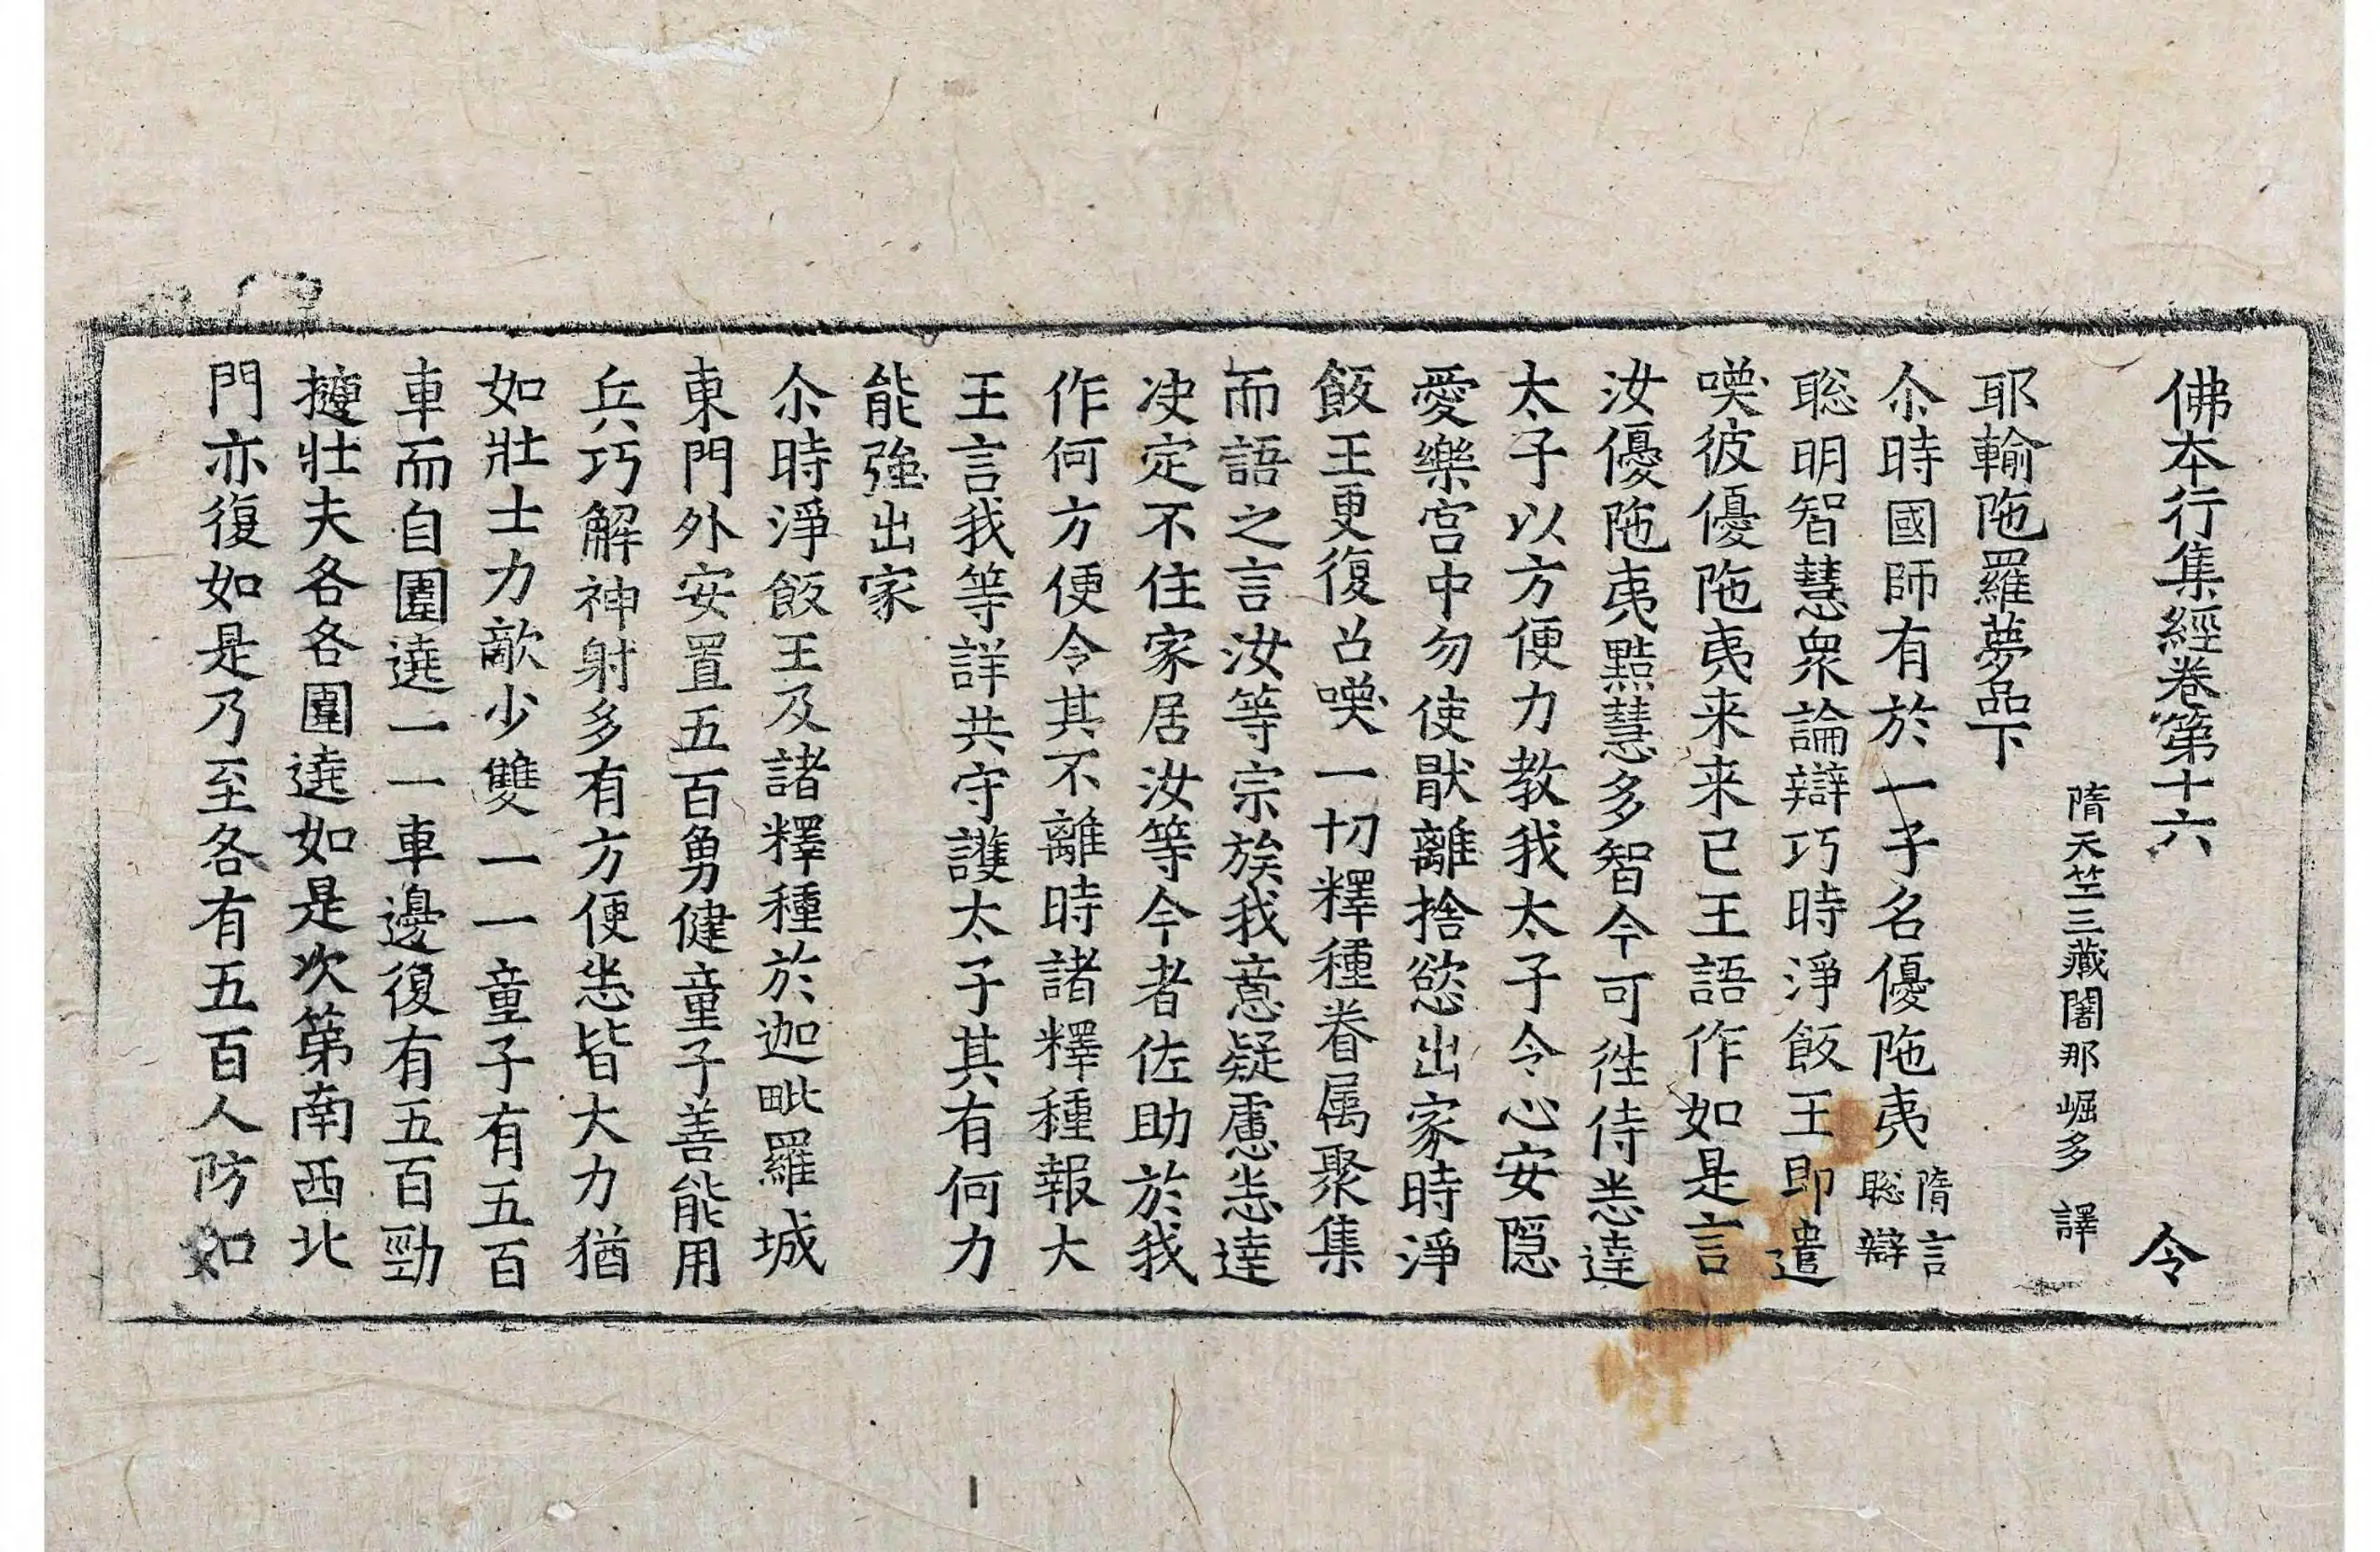 佛本行集經卷第十六 令
隋天竺三藏闍那崛多 譯
耶輸陁羅夢品下
尒時國師有於一子名優陁夷隋言聡辯
聡明智慧衆論辯巧時淨飯王即遣
喚彼優陁夷来来已王語作如是言
汝優陁夷黠慧多智今可徃侍悉達
太子以方便力教我太子令心安隠
愛樂宮中勿使猒離捨慾出家時淨
飯王更復召喚一切釋種眷属聚集
而語之言汝等宗族我意疑慮悉達
决定不住家居汝等今者佐助於我
作何方便令其不離時諸釋種報大
王言我等詳共守護太子其有何力
能強出家
尒時淨飯王及諸釋種於迦毗羅城
東門外安置五百勇健童子善能用
兵巧解神射多有方便悉皆大力猶
如壯士力敵少雙一一童子有五百
車而自圍遶一一車邊復有五百勁
𢸍壯夫各各圍遶如是次第南西北
門亦復如是乃至各有五百人防如